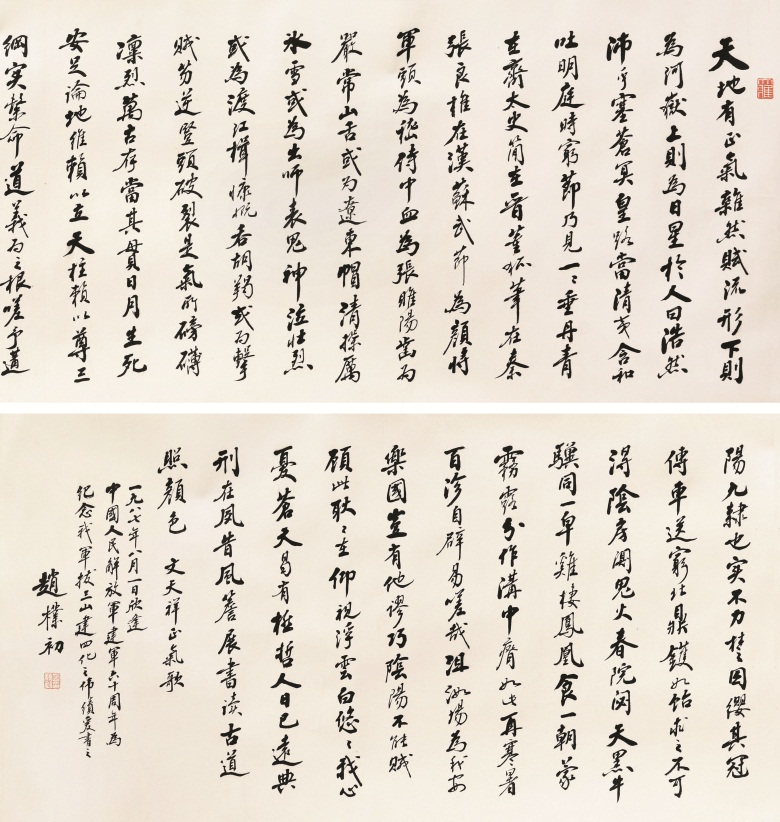 天地有正氣雜然賦流形下則
為河嶽上則為日星於人曰浩然
沛乎塞蒼冥皇路當清夷含和
吐明庭時窮節乃見一〻垂丹青
在齊太史簡在晉董狐筆在秦
張良椎在漢蘇武節為顏將
軍頭為嵇侍中血為張睢陽齒為
嚴常山舌或為遼東帽清操厲
冰雪或為出師表鬼神泣壯烈
或為渡江楫慷慨吞胡羯或為擊
賊笏逆豎頭破裂是氣所磅礴
凜烈萬古存當其貫日月生死
安足論地維賴以立天柱賴以尊三
綱实繫命道義為之根嗟予遘
陽九隸也实不力楚囚纓其冠
傳車送窮北鼎鑊如飴求之不可
得陰房闃鬼火春院閟天黑牛
驥同一皁雞棲鳳凰食一朝蒙
霧露分作溝中瘠如此再寒暑
百沴自辟易嗟哉沮洳場為我安
樂國豈有他謬巧陰陽不能賊
顧此耿〻在仰視浮雲白悠〻我心
憂蒼天曷有極哲人日已遠典
刑在夙昔風簷展書讀古道
照顏色　文天祥正氣歌
一九八七年八月一日欣逢
中國人民解放軍建軍六十周年為
紀念我軍拔三山建四化之偉績爰書之
趙樸初